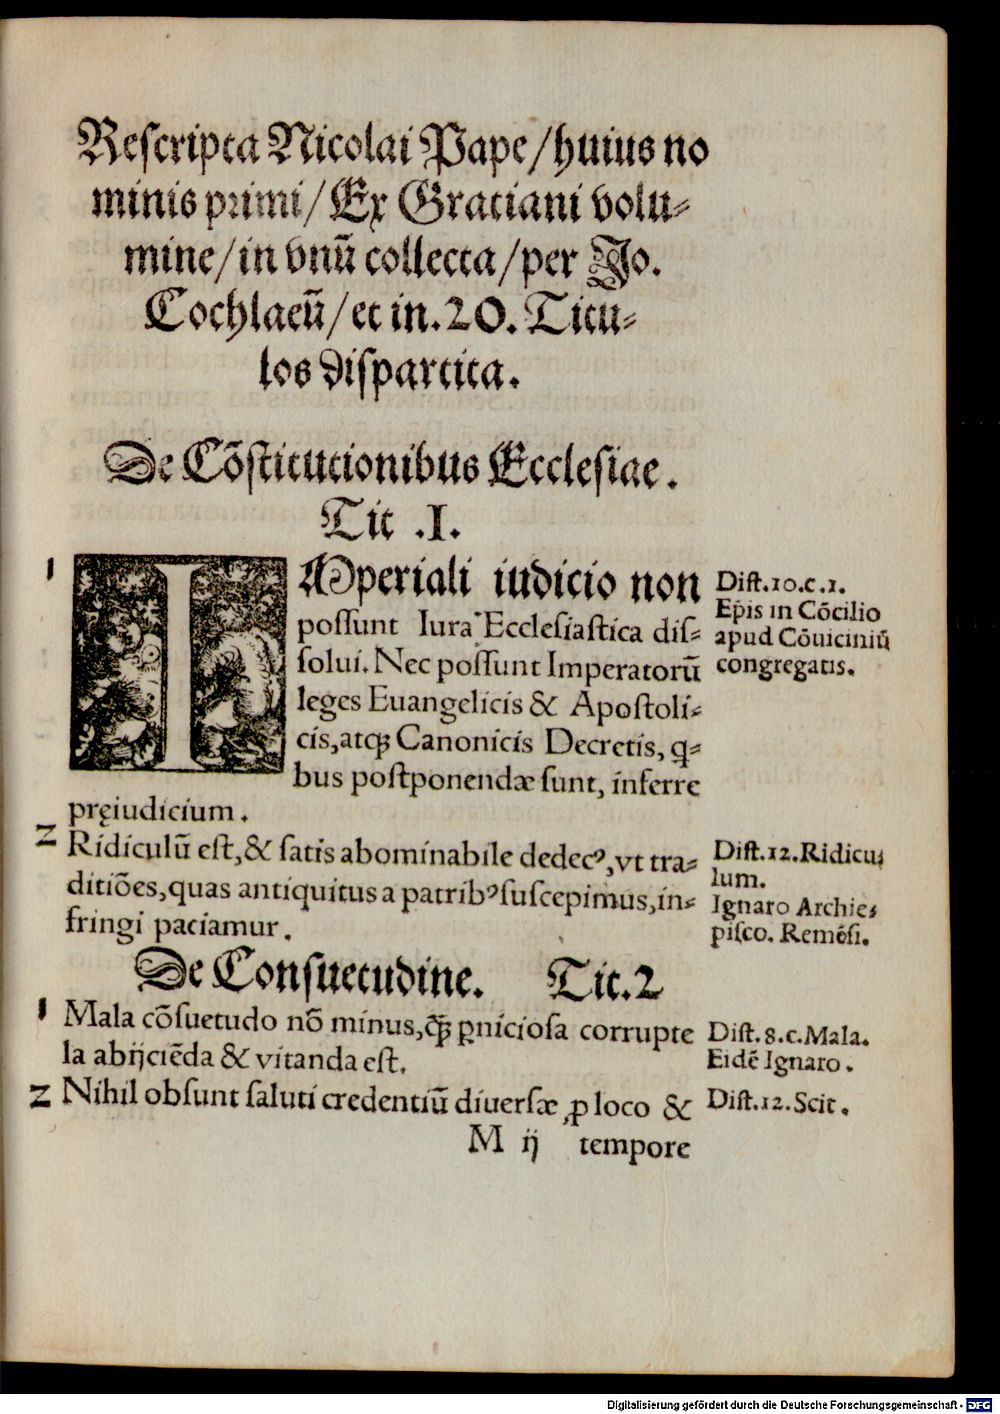 Rescripta Nicolai Pape/huius no
minis primi/Ex Graciani volu-
mine/in vnū collecta/per Jo.
Cochlaeū/et in.20.Titu-
los dispartita.
De Cōstitutionibus Ecclesiae.
Tit .I.
1
IMperiali iudicio non
possunt Iura Ecclesiastica dis-
solui. Nec possunt Imperatorū
leges Euangelicis & Apostoli-
cis, atq; Canonicis Decretis, q-
bus postponendæ sunt, inferre
pręiudicium.
Dist.10.c.1.
Ep̄is in Cōcilio
apud Cōuiciniū
congregatis.
2
Ridiculū est, & satis abominabile dedecꝰ, vt tra-
ditiōes, quas antiquitus a patribꝰ suscepimus, in-
fringi paciamur.
Dist.12.Ridicu-
lum.
Ignaro Archie-
pisco. Remēsi.
De Consuetudine. Tit.2
1
Mala cōsuetudo nō minus, q̄ꝫ ꝑniciosa corrupte
la abijciēda & vitanda est.
Dist.8.c.Mala.
Eidē Ignaro.
2
Nihil obsunt saluti credentiū diuersæ ꝓ loco &
Dist.12.Scit.
M ij tempore
Digitalisierung gefördert durch die Deutsche Forschungsgemeinschaft - DFG